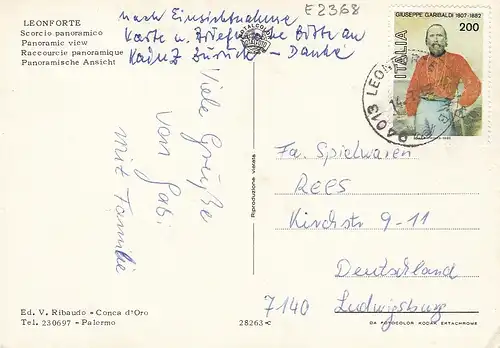 LEONFORTE
Scorcio panoramico
Panoramic view
Raccourcie panoramique
Panoramische Ansicht
E 2368
nach Einsichtnahme
Karte u. Briefwäsche bitte an
Kainz zurück - Danke
GIUSEPPE GARIBALDI 1807-1882
200
ITALIA
94013 LEONFORTE
Viele Grüße
von Gabi
mit Familie
Riproduzione vietata
Fa. Spielwaren
REES
Kirchstr 9-11
Deutschland
7140 Ludwigsburg
Ed. V. Ribaudo - Conca d'Oro
Tel. 230697 - Palermo
28263-c
DA FOTOCOLOR KODAK EKTACHROME